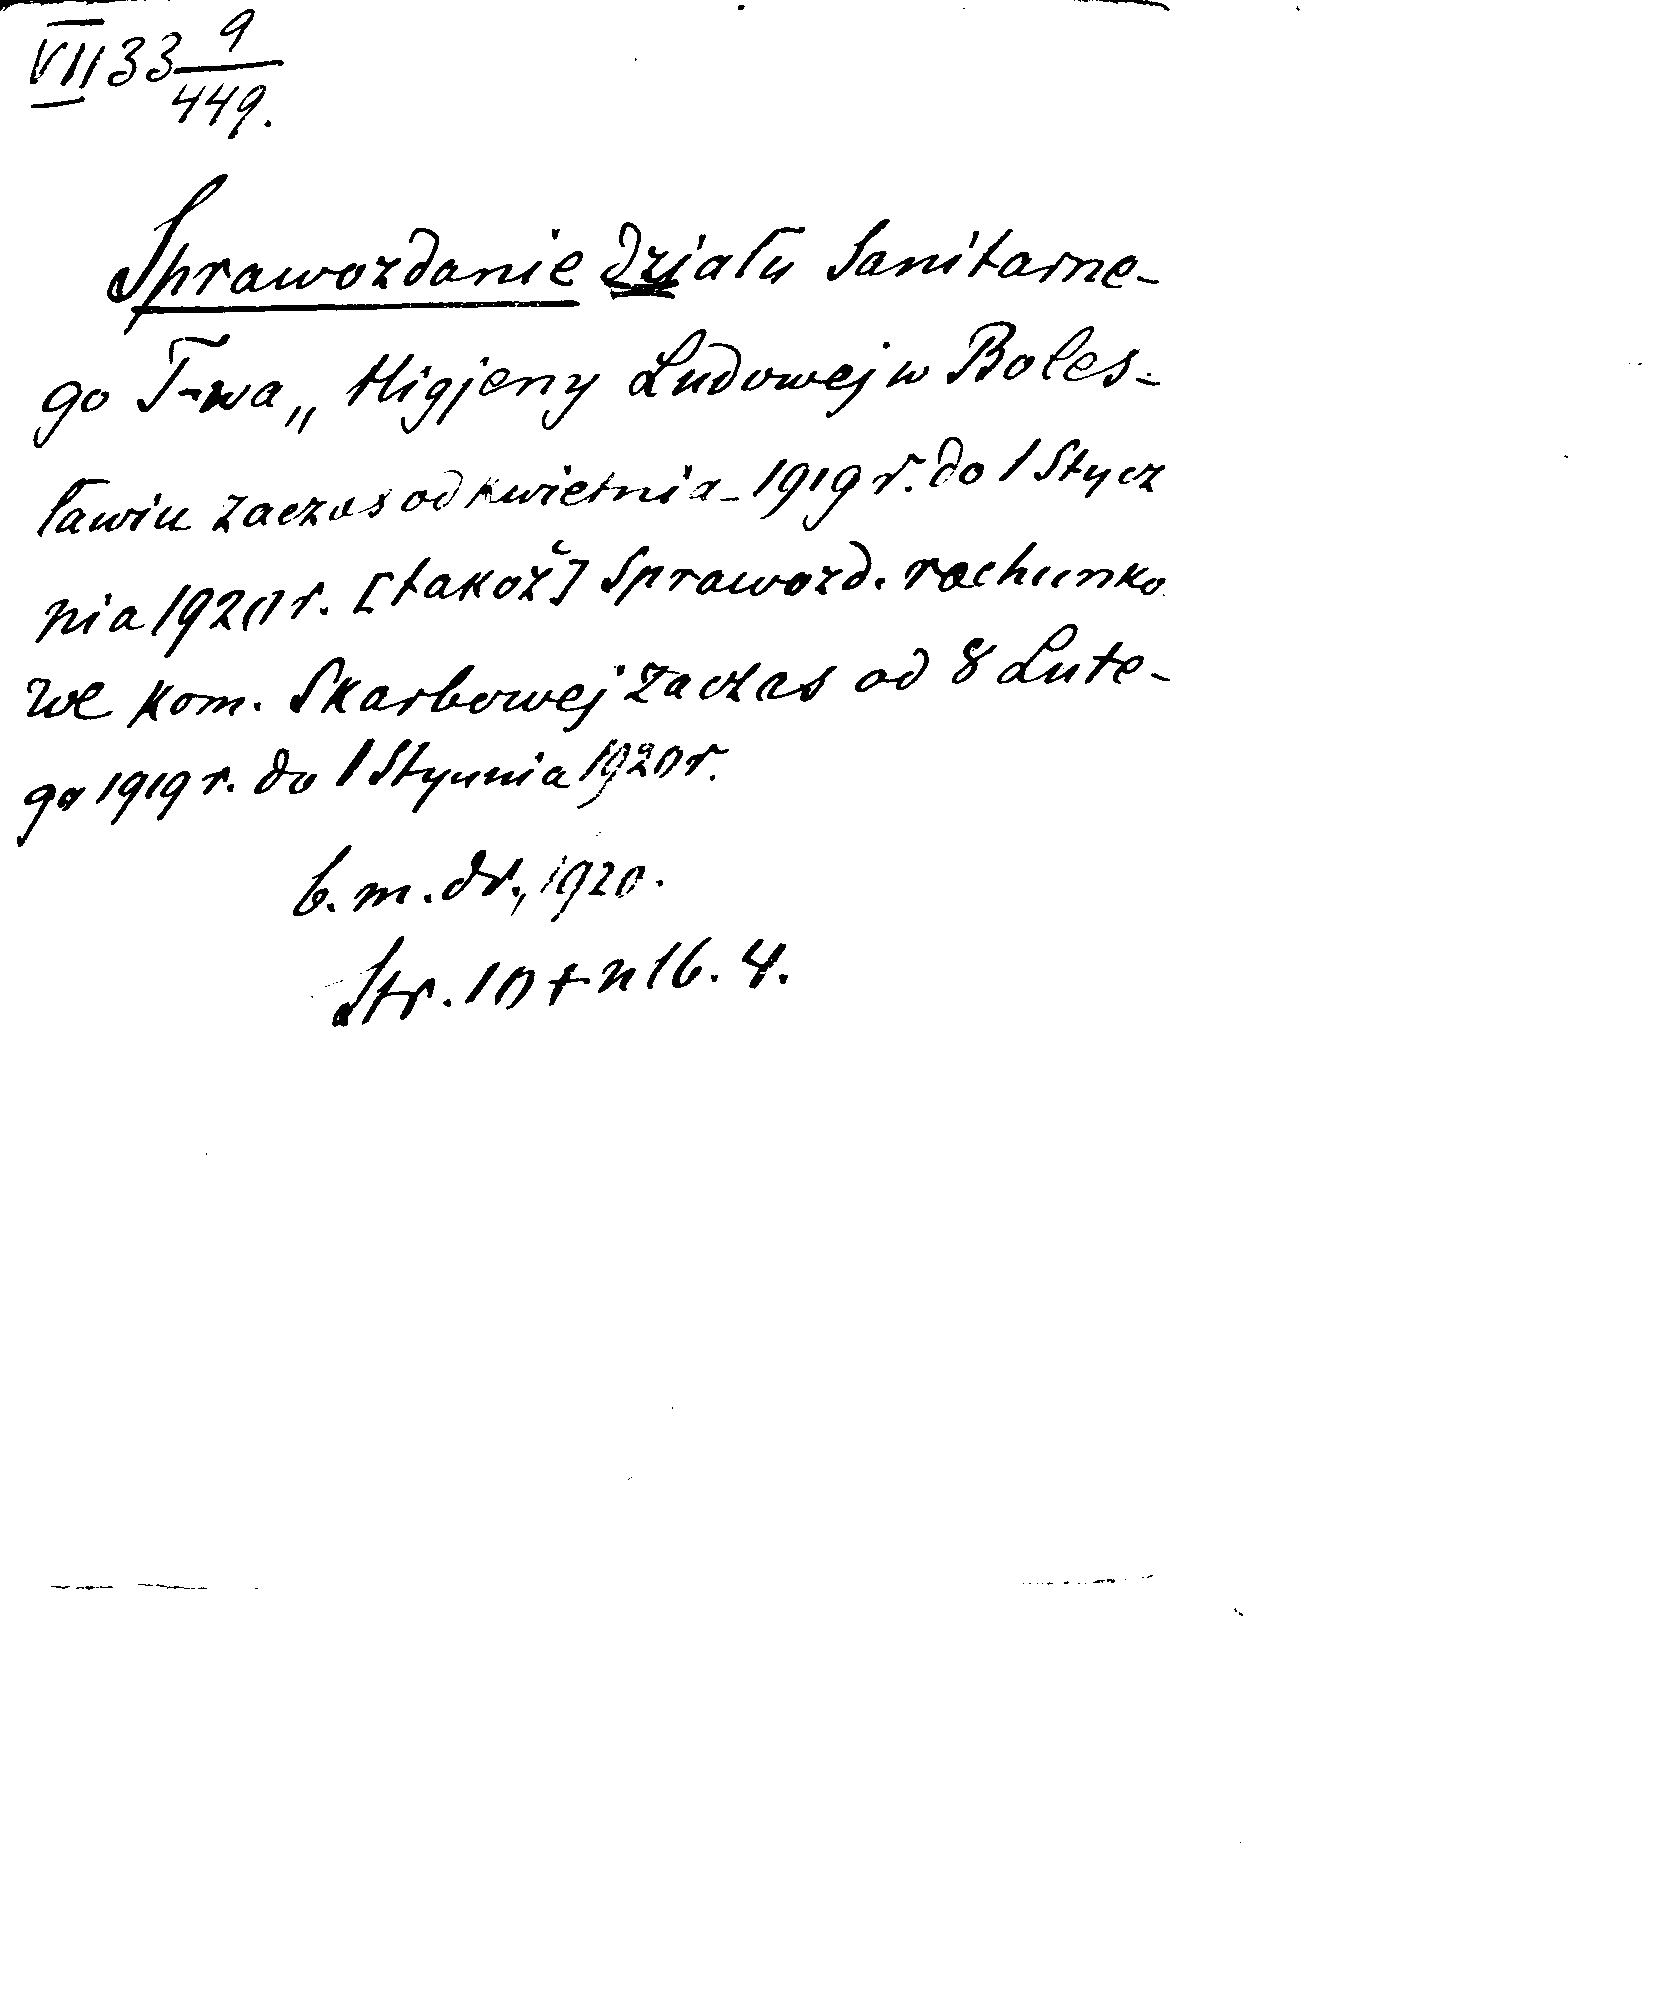 VII 33 9/449.
Sprawozdanie działu Sanitarne-
go T-wa „Higjeny Ludowej w Boles-
ławiu za czas od kwietnia - 1919 r. do 1 Stycz
nia 1920 r. [takoż] Sprawozd. rachunko
we kom. Skarbowej za czas od 8 Lute-
go 1919 r. do 1 Stycznia 1920 r.
b. m. dr., 1920.
Str. 10 + nlb. 4.